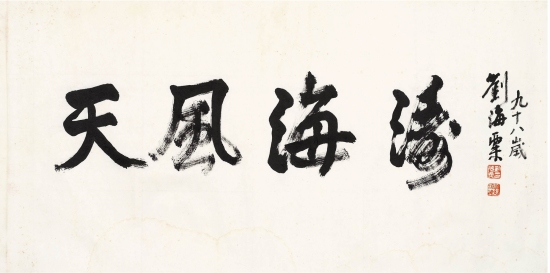 天風海濤
劉海粟
九十八歲